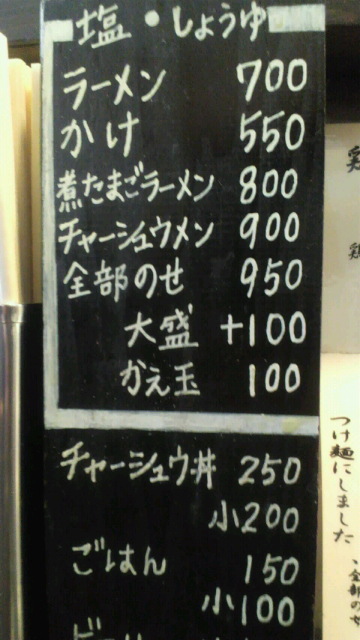 塩・しょうゆ
ラーメン 700
かけ 550
煮たまごラーメン 800
チャーシュウメン 900
全部のせ 950
大盛 +100
かえ玉 100
チャーシュウ丼 250
小200
ごはん 150
小100
つけ麺にしました